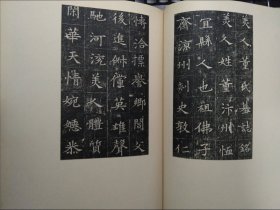 美人董氏墓誌銘
美人姓董汴州恤
宜縣人也祖佛子
齊涼州刺史敦仁
博洽標譽鄉閭父
後進俶儻英雄聲
馳河兗美人體質
閑華天情婉嫕恭